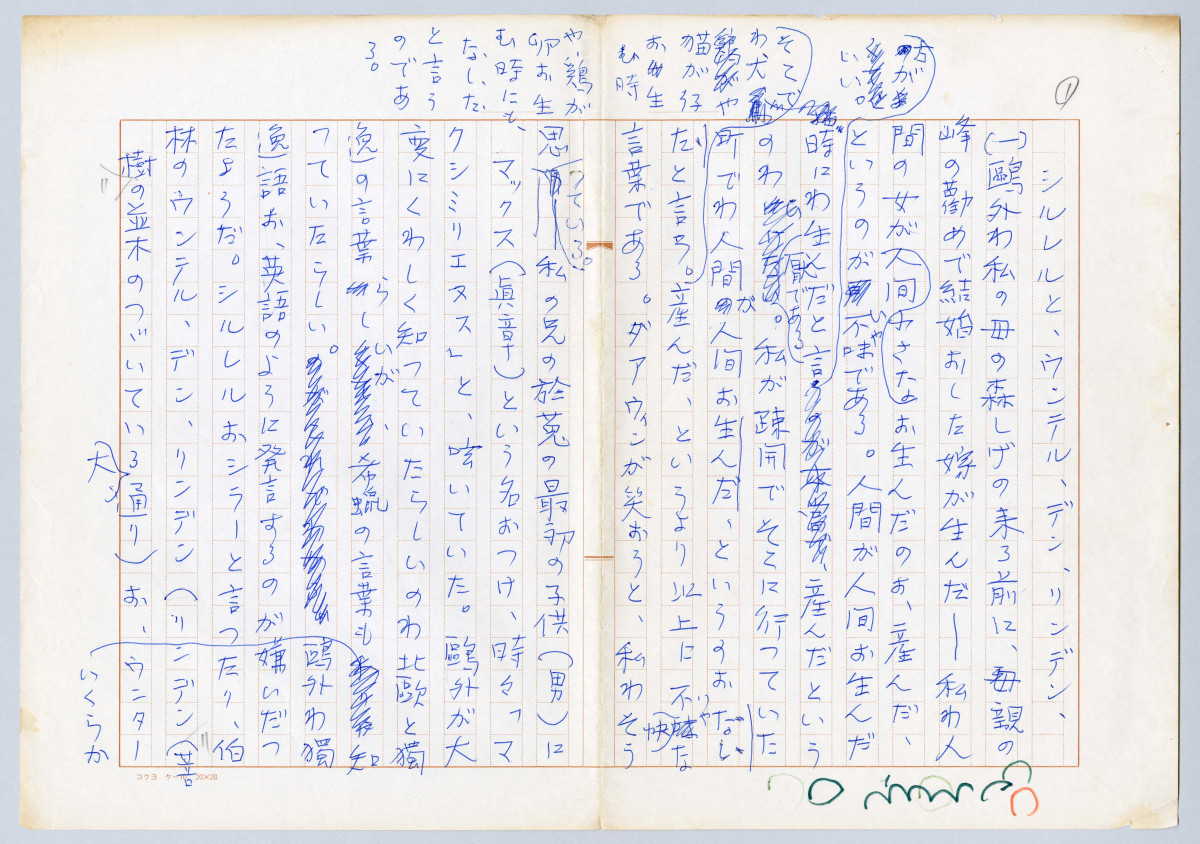 ①
シルレルと、ウンテル、デン、リンデン、
(一)鷗外わ私の母の森しげの来る前に、母親の
峰の勸めで結婚おした嫁が生んだ──私わ人
間の女が人間小さなお生んだのお、産んだ、
というのが不いや味である。人間が人間お生んだ
方が
いい。
時にわ生んだと言
産んだという
のわ
である
。私が疎開でそこに行つていた
町でわ人間が人間お生んだ、というのお
たと言う。産んだ、というより以上に不いやな
(快)
言葉である。ダアウィンが笑おうと、私わそう
そこで
わ、犬が
や
猫が仔
お生
む時
や、鶏が
卵お生
む時にも、
なしいだ
と言う
のであ
る。
思つている。私の兄の於菟の最初の子供(男)に
マックス(眞章)という名おつけ、時々「マ
クシミリエヌス」と、呟いていた。鷗外が大
変にくわしく知つていたらしいのわ北歐と獨
逸の言葉らしいが、希臘の言葉も
いくらか
知
つていたらしい。鷗外わ獨
逸語お、英語のように発言するのが嫌いだつ
たようだ。シルレルおシラーと言つたり、伯
林のウンテル、デン、リンデン(リンデン(菩
樹の並木のつゞいている大通り)お、ウンター
コクヨ ケ-10 20×20